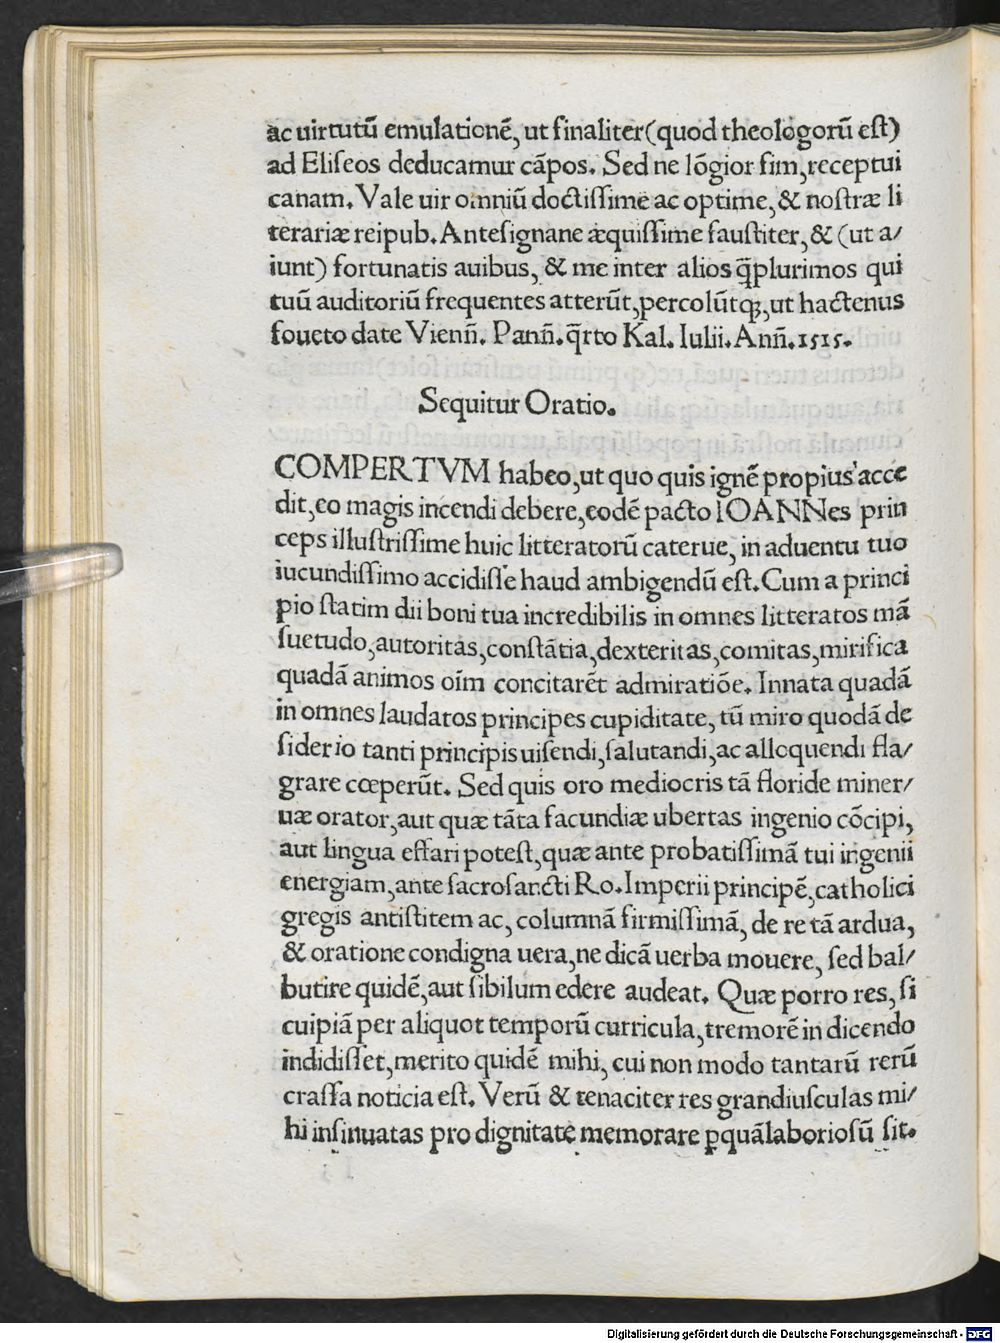 ac uirtutū emulationē, ut finaliter (quod theologorū est)
ad Eliſeos deducamur cāpos. Sed ne lōgior ſim, receptui
canam. Vale uir omniū doctiſſime ac optime, & noſtræ li
terariæ reipub. Anteſignane æquiſſime fauſtiter, & (ut a/
iunt) fortunatis auibus, & me inter alios q̄plurimos qui
tuū auditoriū frequentes atterūt, percolūtq;, ut hactenus
foueto date Vienn̄. Pann̄. q̄rto Kal. Iulii. Ann̄. 1515.
Sequitur Oratio.
COMPERTVM habeo, ut quo quis ignē propius acce
dit, eo magis incendi debere, eodē pacto IOANNes prin
ceps illuſtriſſime huic litteratorū caterue, in aduentu tuo
iucundiſſimo accidiſſe haud ambigendū est. Cum a princi
pio ſtatim dii boni tua incredibilis in omnes litteratos mā
ſuetudo, autoritas, conſtātia, dexteritas, comitas, mirifica
quadā animos oīm concitarēt admiratiōe. Innata quadā
in omnes laudatos principes cupiditate, tū miro quodā de
ſiderio tanti principis uiſendi, ſalutandi, ac alloquendi fla/
grare cœperūt. Sed quis oro mediocris tā floride miner/
uæ orator, aut quæ tāta facundiæ ubertas ingenio cōcipi,
aut lingua effari poteſt, quæ ante probatiſſimā tui ingenii
energiam, ante ſacroſancti Ro. Imperii principē, catholici
gregis antiſtitem ac, columnā firmiſſimā, de re tā ardua,
& oratione condigna uera, ne dicā uerba mouere, ſed bal/
butire quidē, aut ſibilum edere audeat. Quæ porro res, ſi
cuipiā per aliquot temporū curricula, tremorē in dicendo
indidiſſet, merito quidē mihi, cui non modo tantarū rerū
craſſa noticia eſt. Verū & tenaciter res grandiuſculas mi/
hi inſinuatas pro dignitate memorare ꝑquālaborioſū ſit.
Digitalisierung gefördert durch die Deutsche Forschungsgemeinschaft - DFG